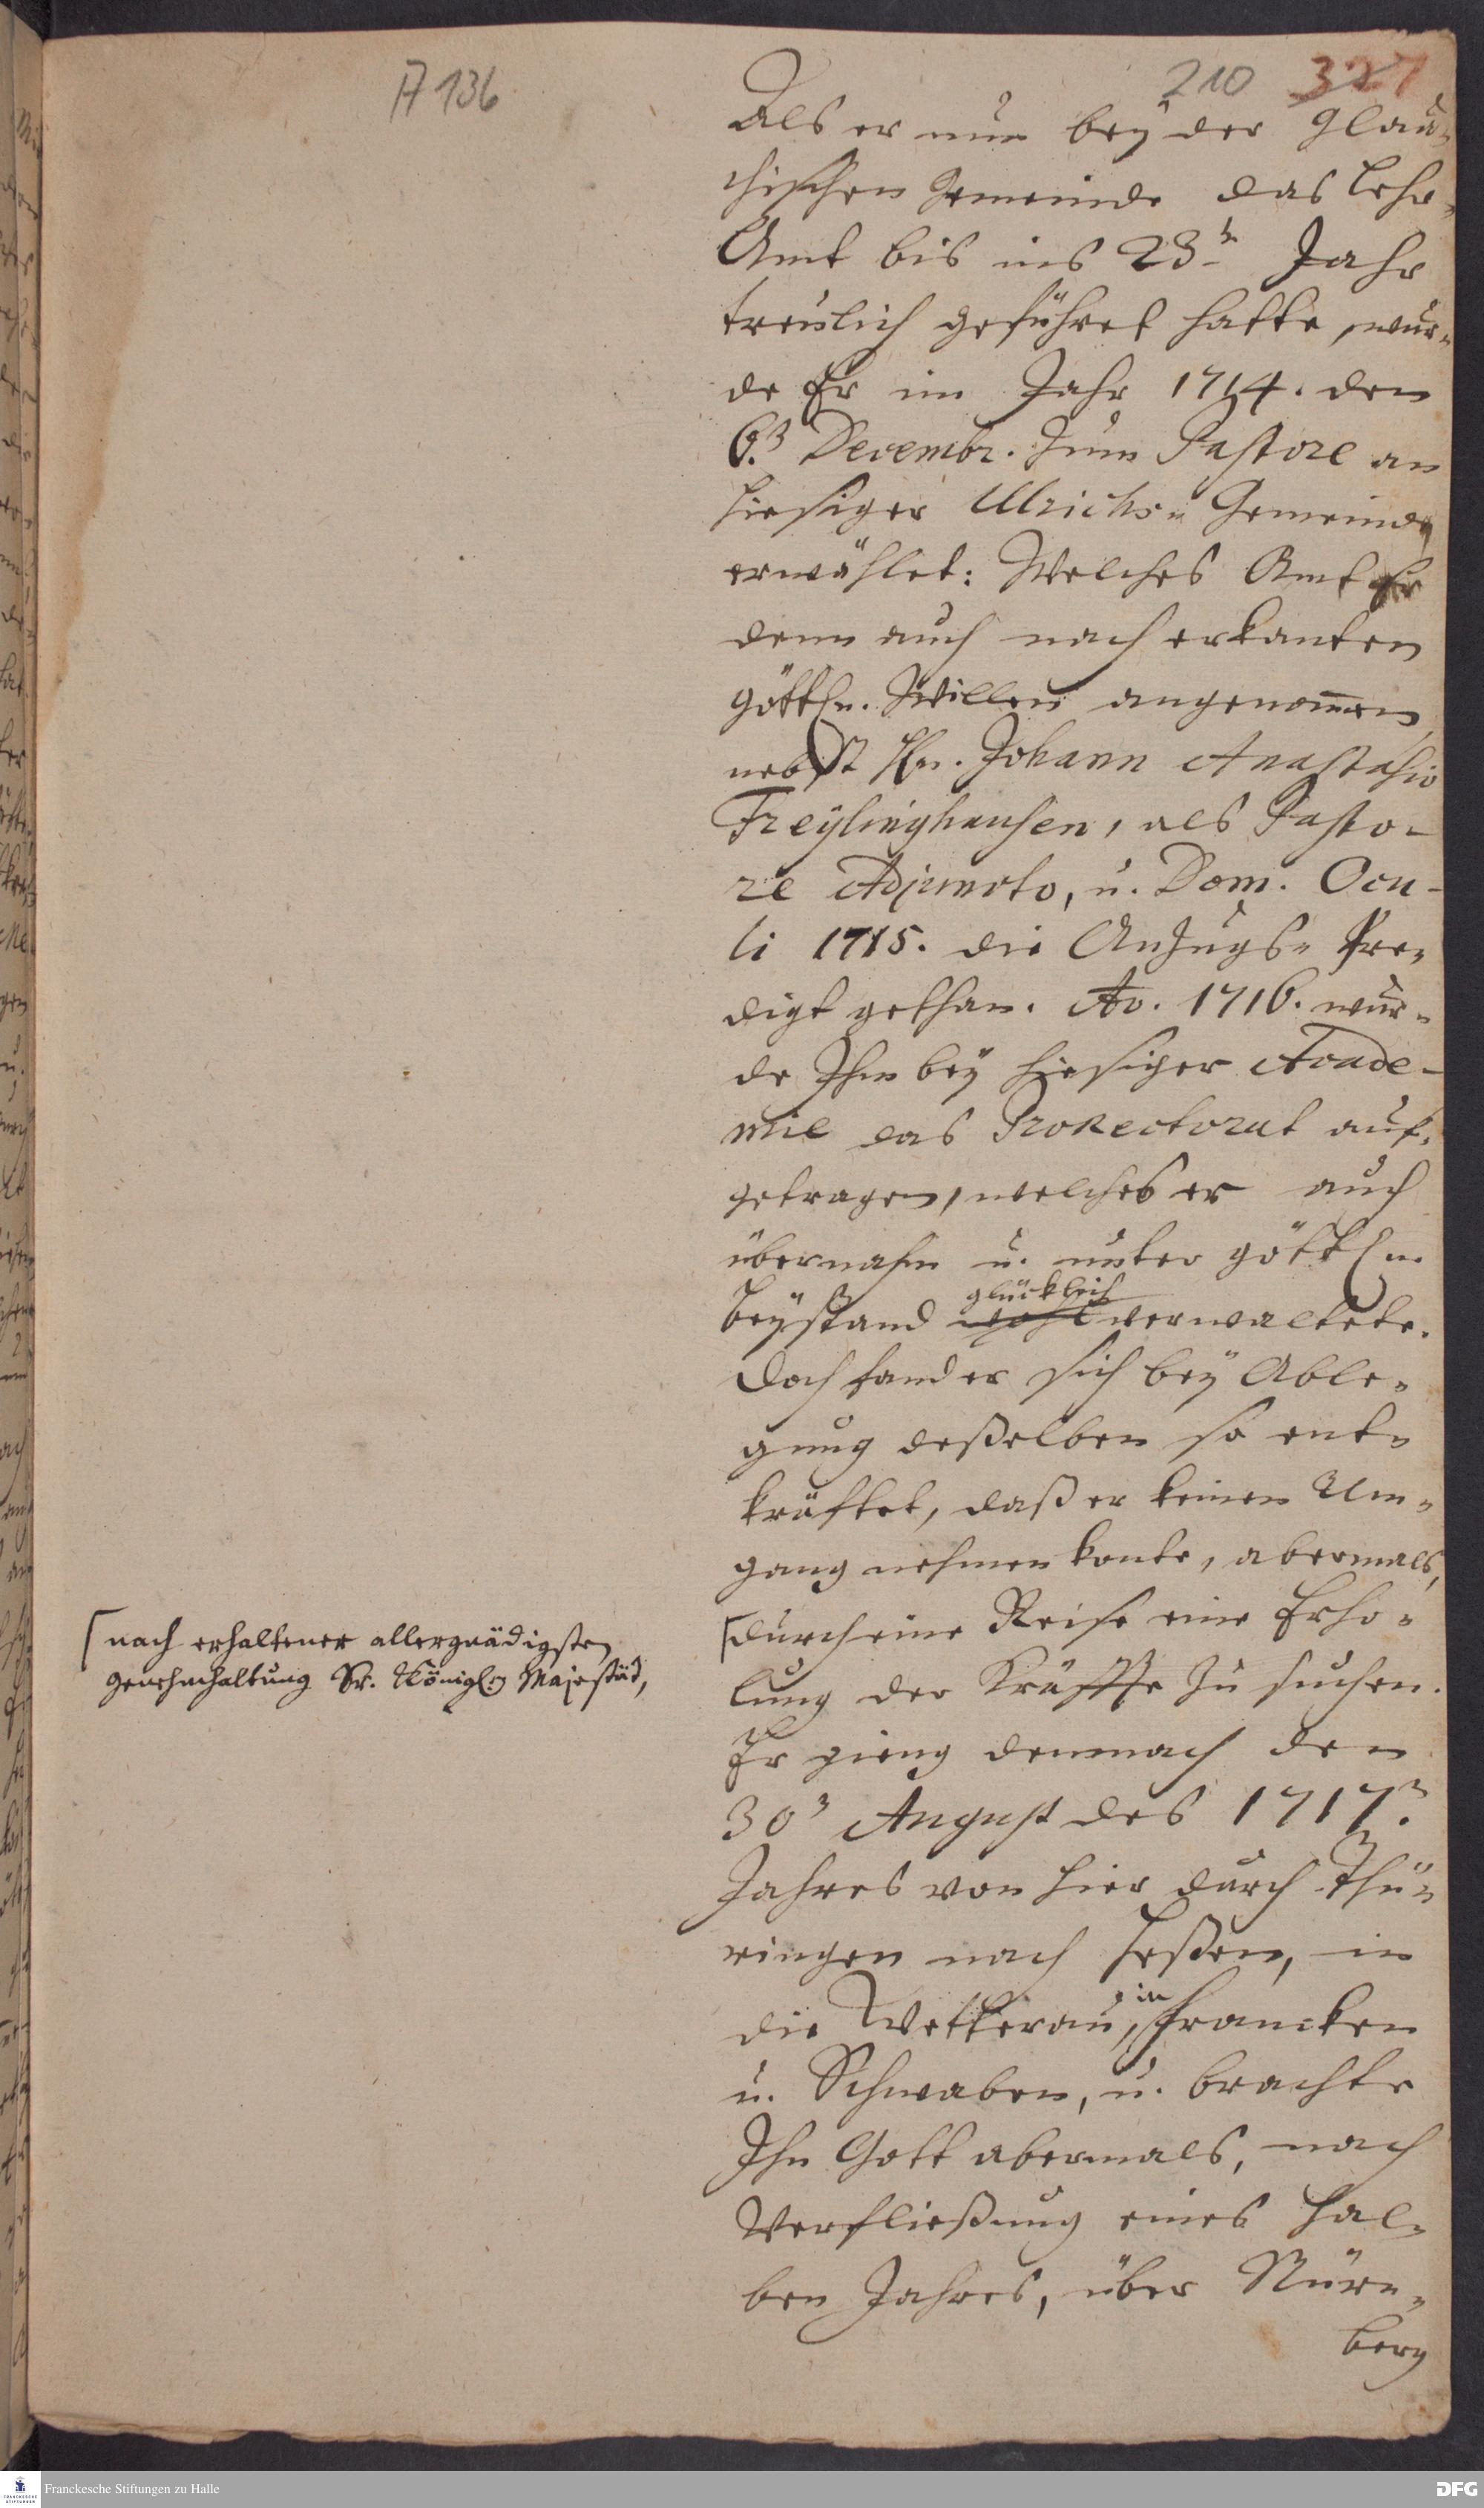 A 136
210 327
Als er nun bey der Glau-
chischen Gemeinde das Lehr-
Amt bis ins 23te Jahr
treulich geführet hatte, wur-
de Er im Jahr 1714. den
6.ten Decembr. zum Pastore an
hiesiger Ulrichs- Gemeinde
erwählet: Welches Amt Er
denn auch nach erkanten
göttln. Willen angenom̅en,
nebst Hn. Johann Anastasio
Freylinghausen, als Pasto-
re Adjuncto, u. Dom. Ocu-
li 1715. die Anzugs- Pre-
digt gethan. Ao. 1716. wur-
de Ihm bey hiesiger Acade-
mie das ProRectorat auf-
getragen, welches er auch
übernahm u. unter göttln.
glücklich
Beystand wohl verwaltete.
Doch fand er sich bey Able-
gung deßelben so ent-
kräftet, daß er keinen Um-
gang nehmen konte, abermals,
[durch eine Reise eine Erho-
[nach erhaltener allergnädigsten
Genehmhaltung Sr. Königl. Majestät,
lung der Kräffte zu suchen.
Er gieng demnach den
30ten August des 1717ten
Jahres von hier durch Thü-
ringen nach Heßen, in
die Wetterau, in Francken
u. Schwaben, u. brachte
Ihn Gott abermals, nach
Verfließung eines hal-
ben Jahres, über Nürn-
berg
Franckesche Stiftungen zu Halle
DFG